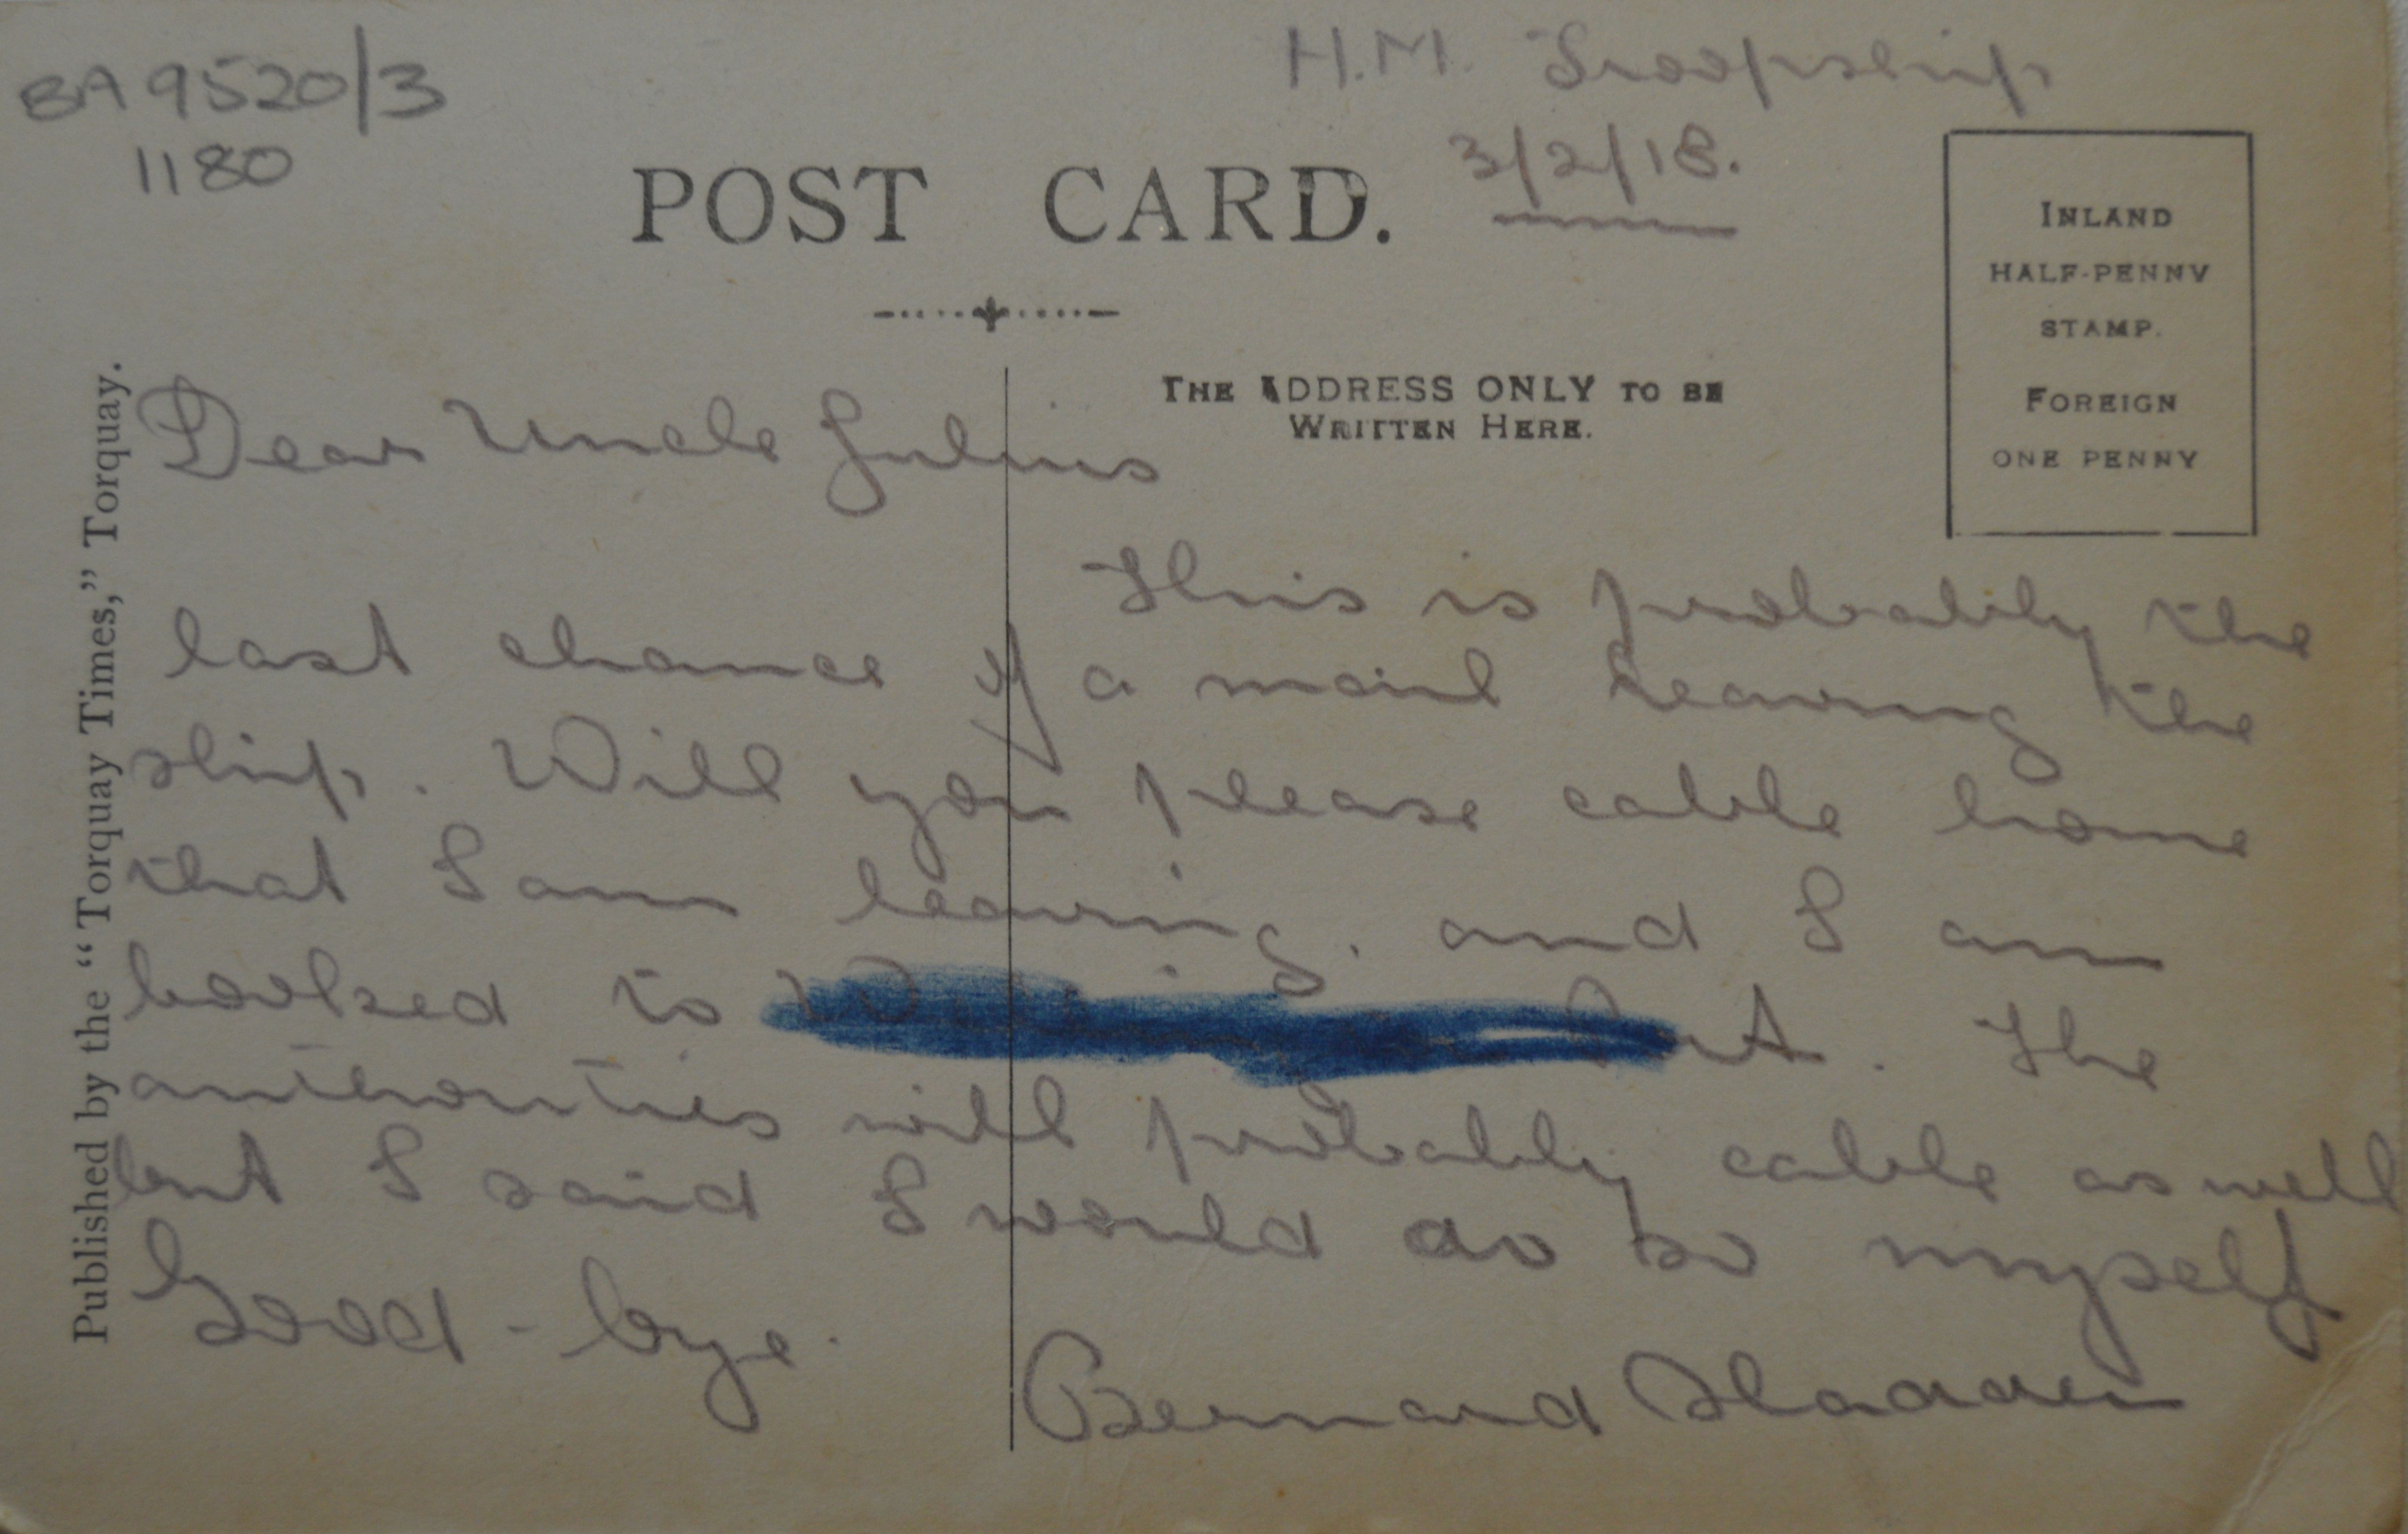 BA 9520/3
1180
H.M. Troopship
3/2/18.
POST CARD.
INLAND
HALF-PENNY
STAMP.
FOREIGN
ONE PENNY
THE ADDRESS ONLY TO BE
WRITTEN HERE.
Published by the "Torquay Times," Torquay.
Dear Uncle Julius
This is probably the
last chance of a mail leaving the
ship. Will you please cable home
that I am leaving. and I am
booked to
The
authorities will probably cable as well
but I said I would do so myself
Good-bye.
Bernard Sladden